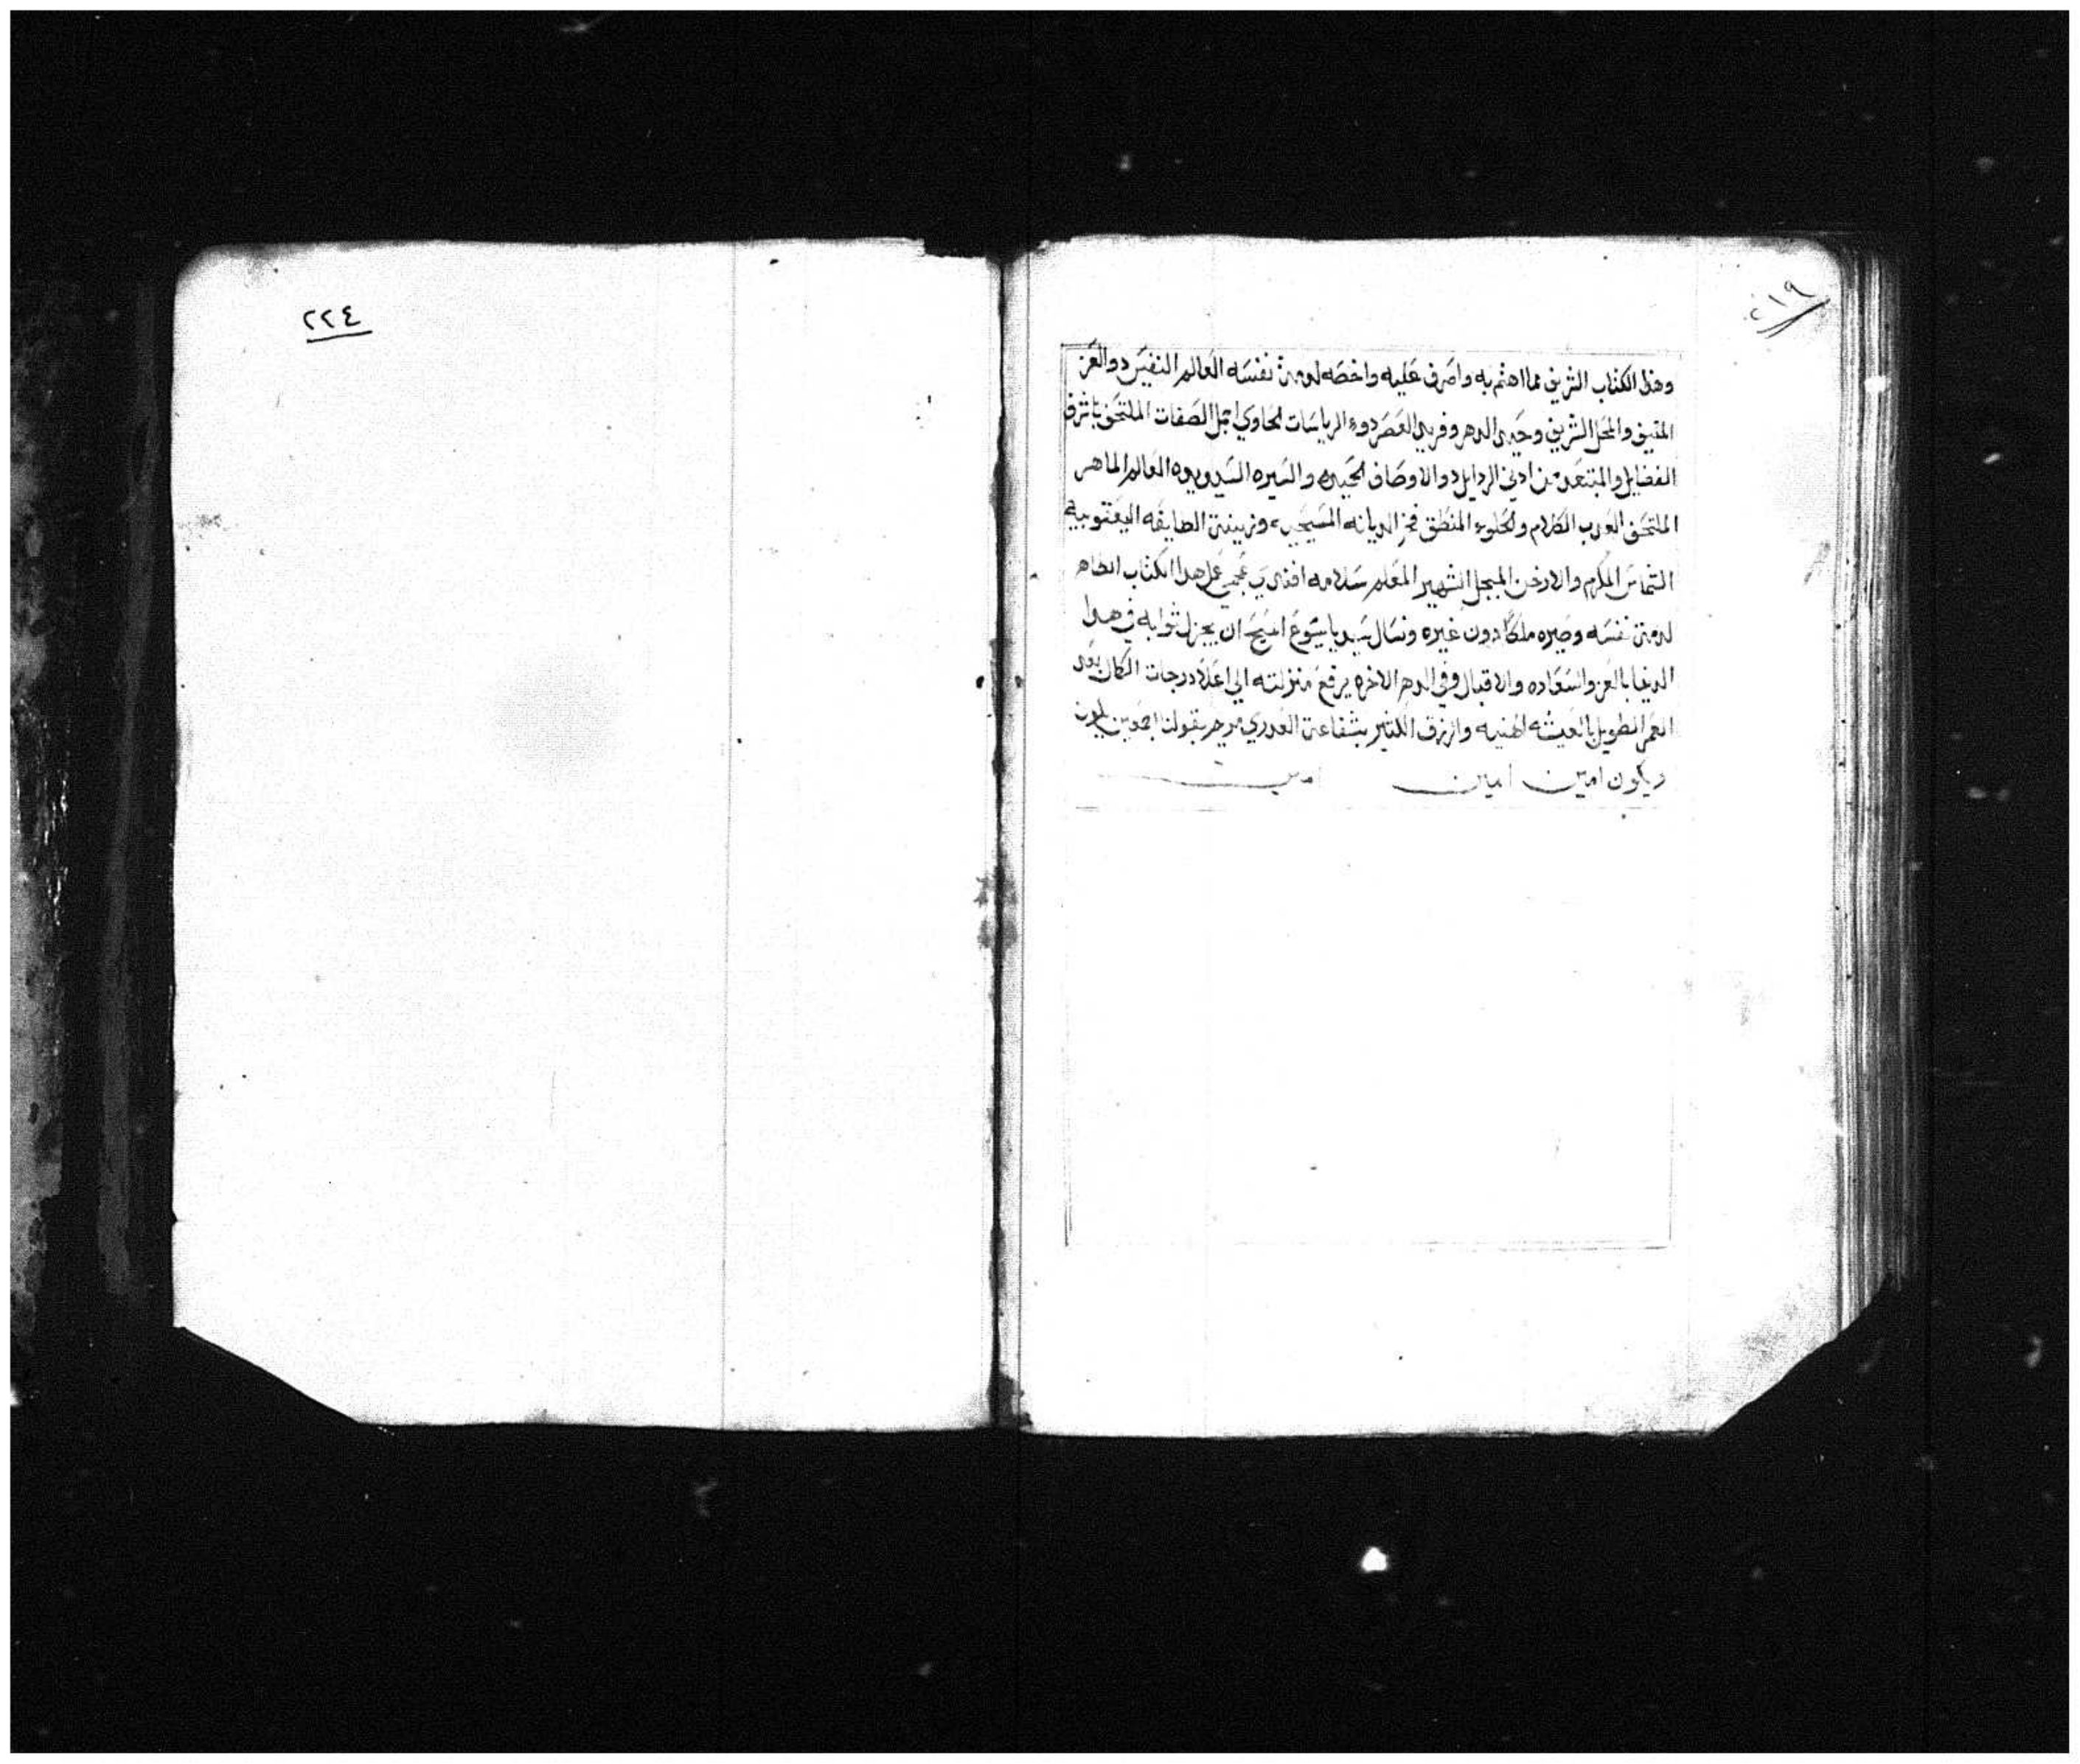 ٢١٩
وهذا الكتاب الشريف مما اهتم به واصرف عليه واخصه لدمة نفسه العالم النفيس دو العز
المنيف والمحل الشريف وحيد الدهر وفريد العصر دوه الرياسات الحاوي اجمل الصفات الملتحق باشرف
الفضايل والمبتعد من ادني الردايل دو الاوصاف الحميده والسيره السديده العالم الماهر
الملتحق العدب الكلام والحلوه المنطق فخر الديانه المسيحيه وزينة الطايفه اليعقوبيه
الشماس المكرم والارخن المبجل الشهير المعلم سلامه افندي عمل هدا الكتاب الطاهر
لدمة نفسه وصيره ملكا دون غيره ونسال سيدنا يسوع المسيح ان يجزل ثوابه في هدا
الدنيا بالعز والسعاده والاقبال وفي الدهر الاخره يرفع منزلته الي اعلا درجات الكمال بعد
العمر الطويل بالعيشه الهنيه والرزق الكثير بشفاعة العدري مريم بقولنا اجمعين يكون
ويكون امين امين امين
٢٢٤